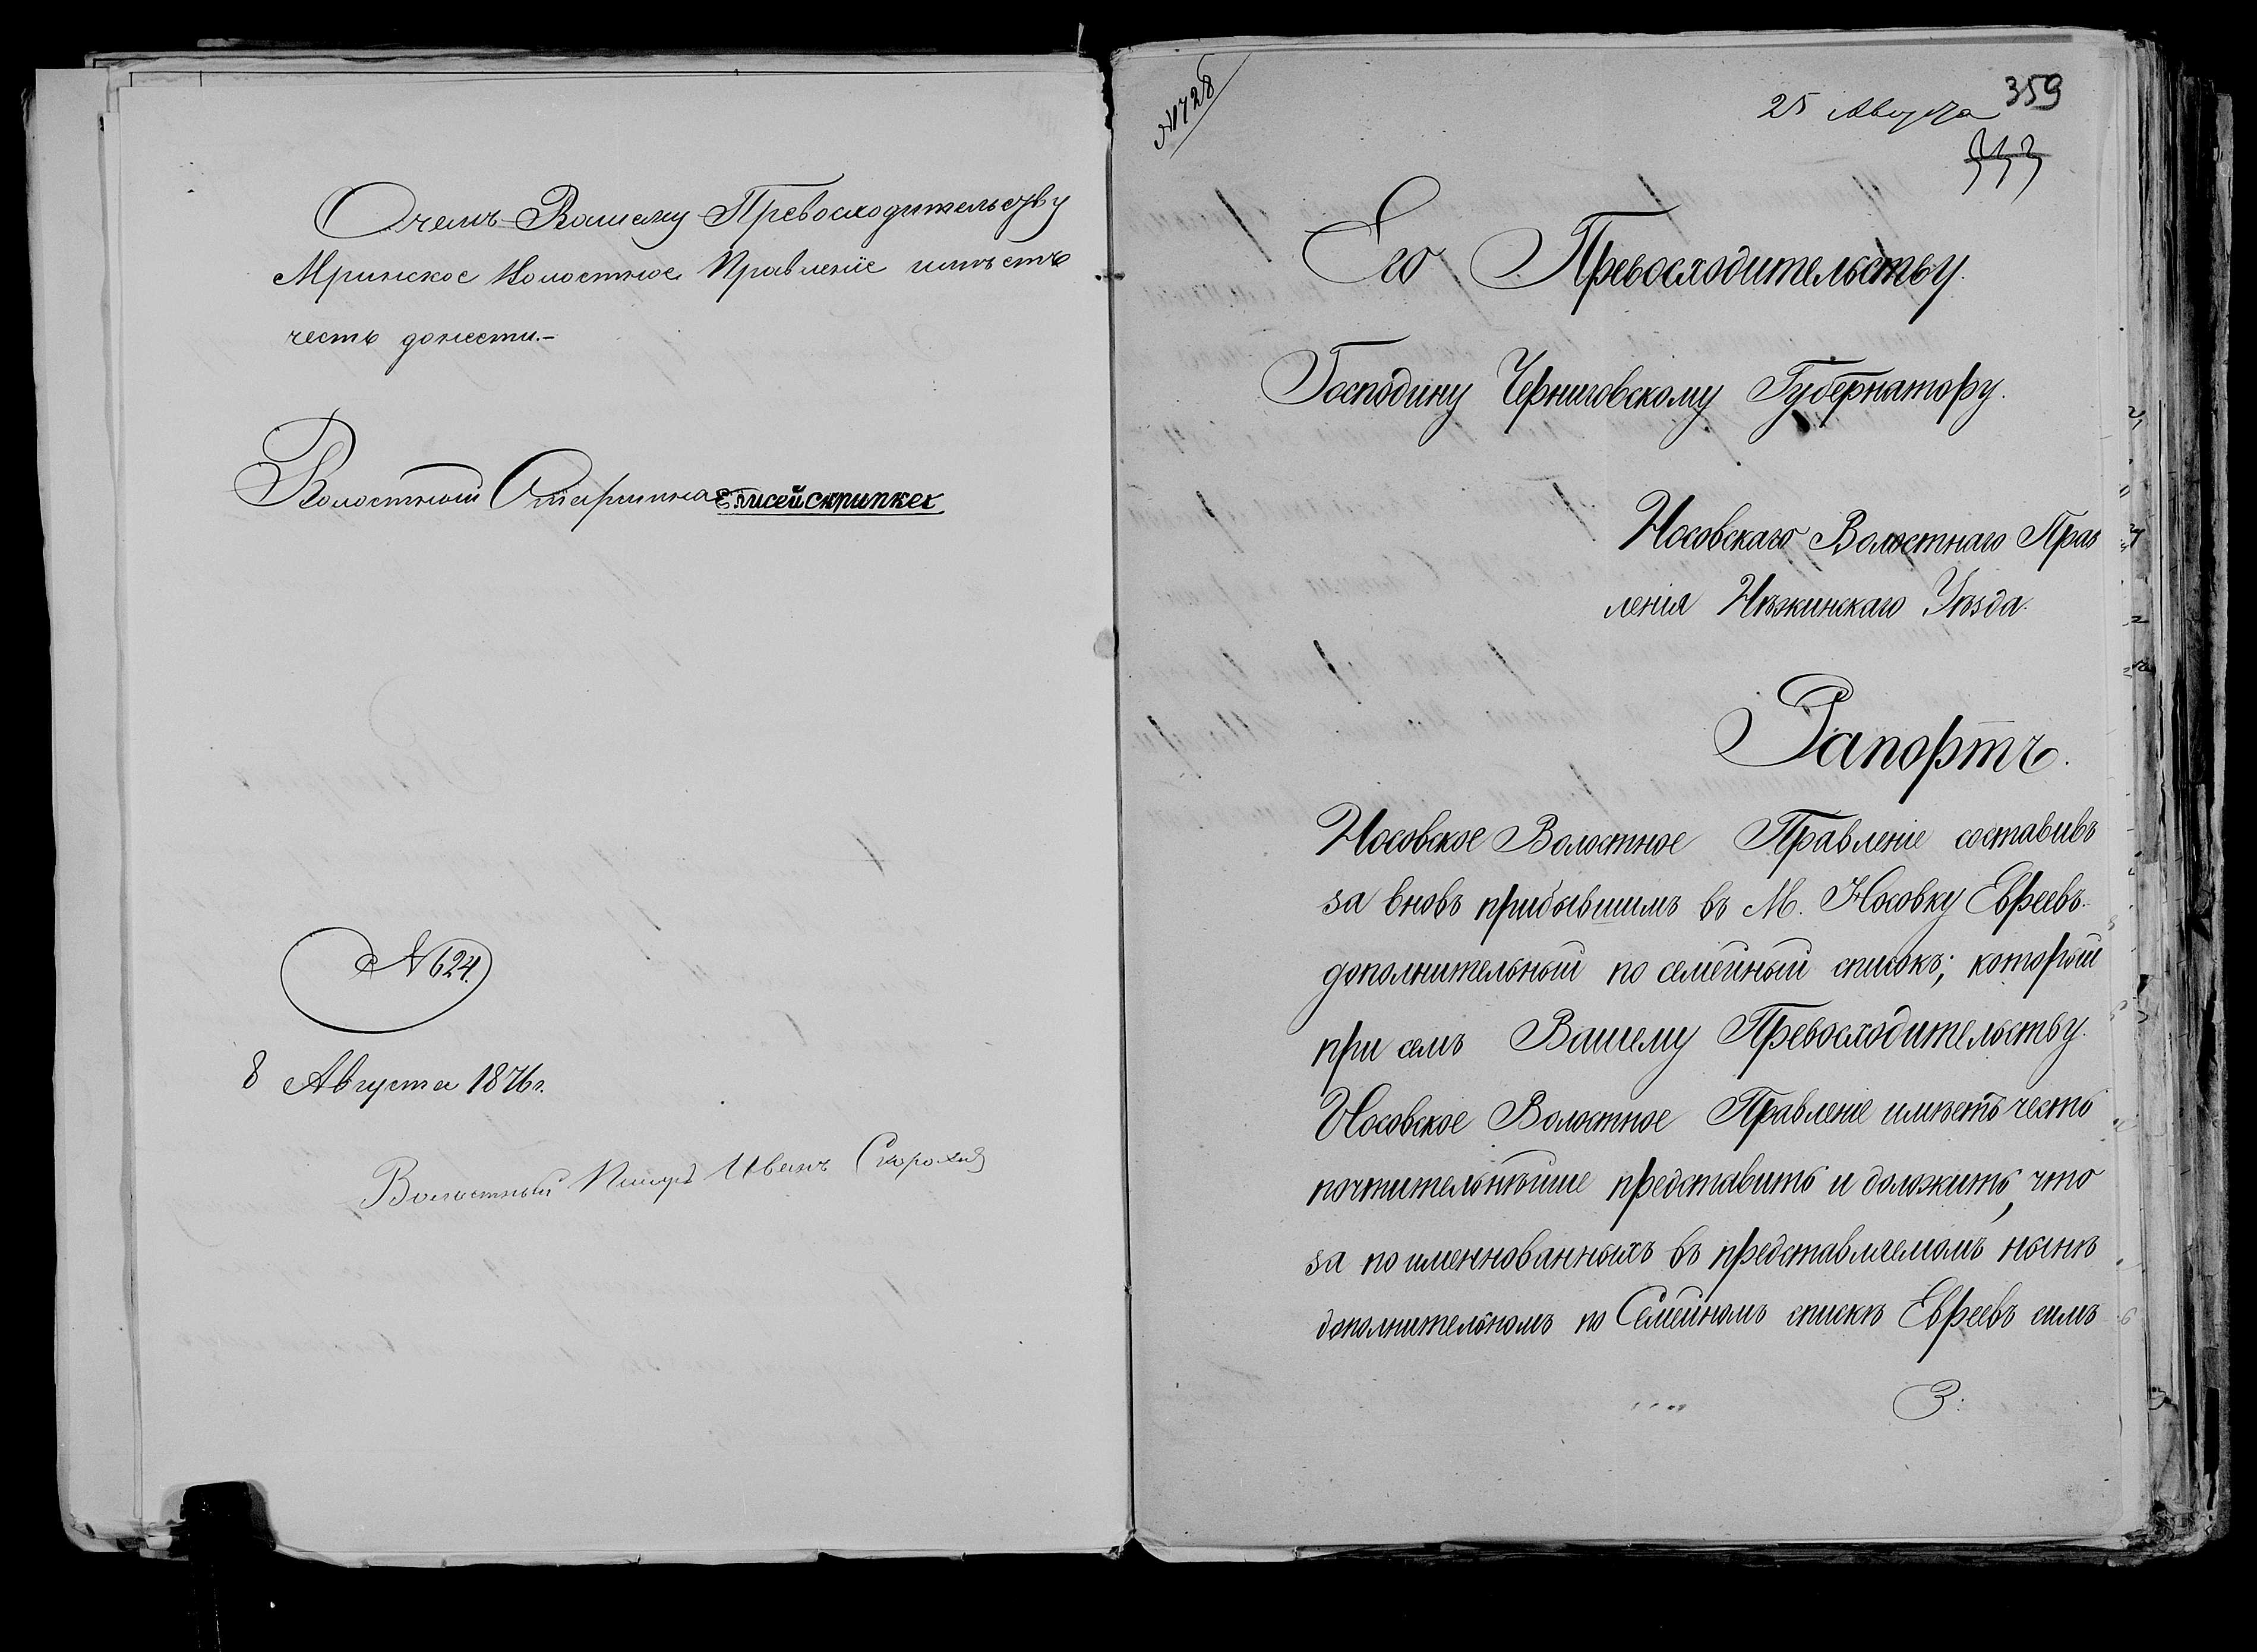 О чемъ Вашему Превосходительству
Мринское Волостное Правленіе имѣетъ
честь донести.-
Волостной Старшина Елисей Скрипкех
№ 624.
8 Августа 1876 г.
Волостный Писарь Иванъ Скороход
№ 1728
25 Августа 359
Его Превосходительству.
Господину Черниговскому Губернатору.
Носовскаго Волостнаго Прав
ленія Нѣжинскаго Уѣзда.
Рапортъ.
Носовское Волостное Правленіе составивъ
за вновь прибывшимъ въ М. Носовку Евреевъ.
дополнительный по семейный списокъ; который
при семъ Вашему Превосходительству.
Носовское Волостное Правленіе имѣетъ честь
почтительнѣйше представить и доложить, что
за по именнованныхъ въ представляемомъ нынѣ
дополнительномъ по Семейномъ спискѣ Евреевъ симъ
З: